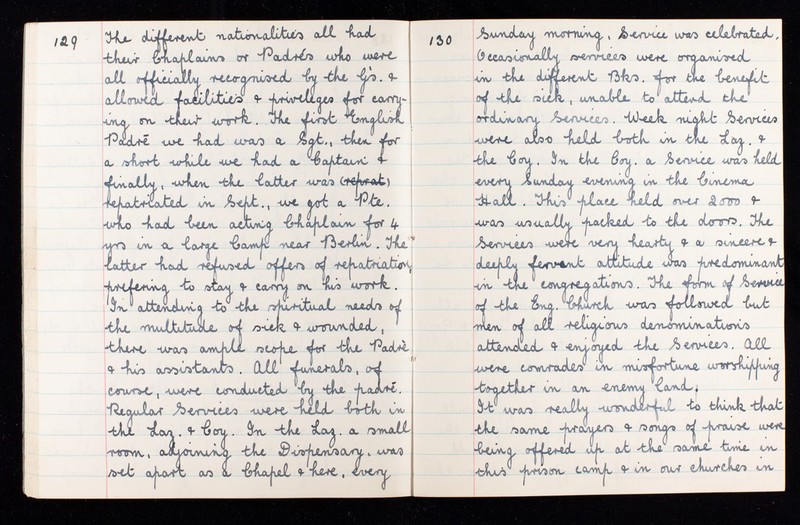 129
The different nationalities all had
their Chaplains or Padrés who were
all officially recognised by the G's. &
allowed facilities & priveliges for carry-
ing on their work. The first English
Padrē we had was a Sgt., then for
a short while we had a Captain &
finally, when the latter was (reprat)
repatriated in Sept., we got a Pte.
who had been acting Chaplain for 4
yrs in a large Camp near Berlin. The
latter had refused offers of repatriation,
prefering to stay & carry on his work.
In attending to the spiritual needs of
the multitude of sick & wounded,
there was ample scope for the Padrè
& his assistants. All funerals, of
course, were conducted by the padrē.
Regular Services were held both in
the Laz. & Coy. In the Laz. a small
room, adjoining the Dispensary, was
set apart as a Chapel & here, every
130
Sunday morning, Service was celebrated.
Occasionally services were organised
in the different Bks. for the benefit
of the sick, unable to attend the
ordinary Services. Week night Services
were also held both in the Laz. &
the Coy. In the Coy. a Service was held
every Sunday evening in the Cinema
Hall. This place held over 2000 &
was usually packed to the doors. The
Services were very hearty & a sincere &
deeply fervent attitude was predominant
in the congregations. The form of Service
of the Eng. Church was followed but
men of all religious denominations
attended & enjoyed the Services. All
were comrades in misfortune worshipping
together in an enemy land.
It was really wonderful to think that
the same prayers & songs of praise were
being offered up at the same time in
this prison camp & in our churches in